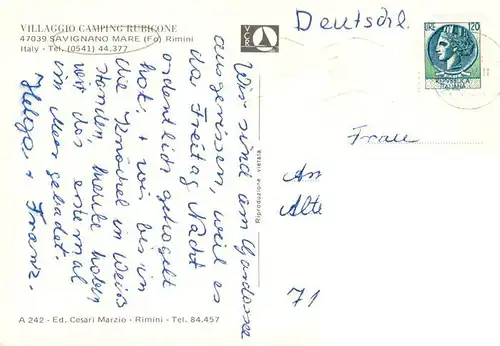 VILLAGGIO CAMPING RUBICONE
47039 SAVIGNANO MARE (Fo) Rimini
Italy - Tel. (0541) 44.377
VCR
Deutschl.
LIRE 120
REPUBBLICA
ITALIANA
Wir sind am Gardasee
ausgerissen, weil es
da Freitag Nacht
ordentlich gehagelt
hat, + wir bis in
die Knöchel in Weiß
standen, heute haben
wir das erstemal
im Meer gebadet.
Helga + Franz.
Riproduzione vietata
Frau
Am
Alte
71
A 242 - Ed. Cesari Marzio - Rimini - Tel. 84.457